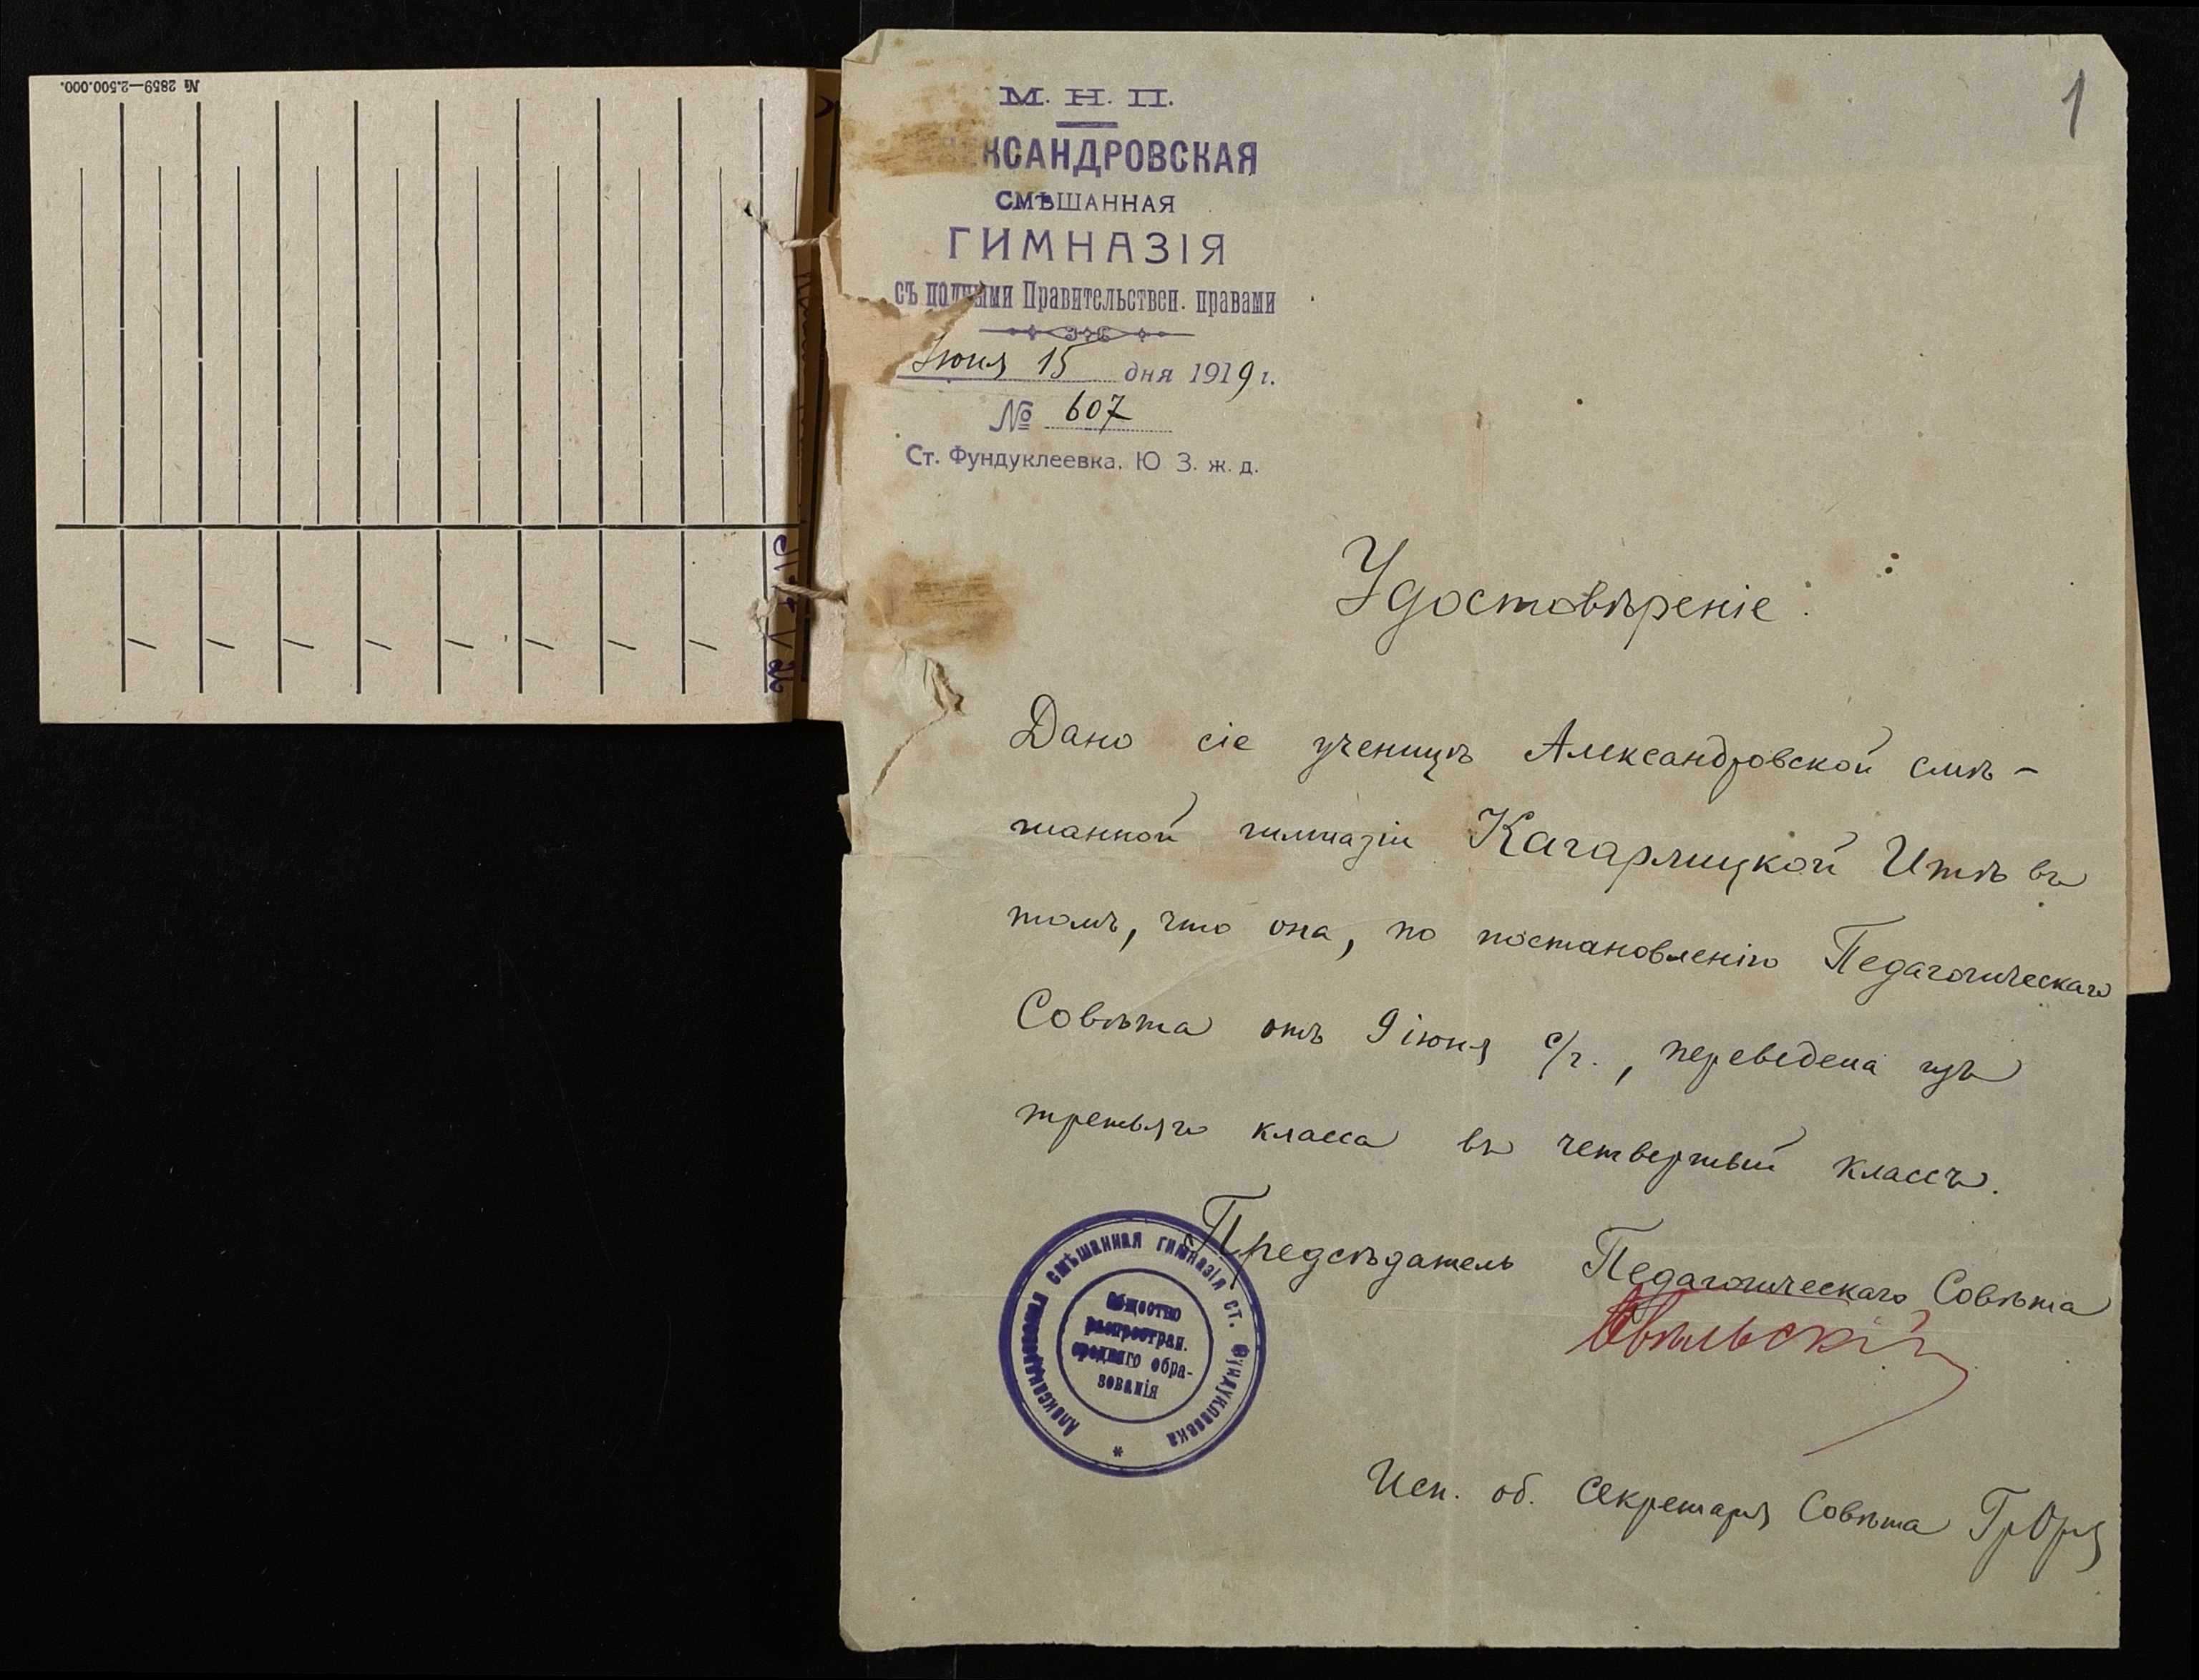 № 2859—2.500.000.
1
М. Н. П.
КСАНДРОВСКАЯ
СМѢШАННАЯ
ГИМНАЗІЯ
съ полными Правительствен. правами
Июня 15 дня 1919 г.
№ 607
Ст. Фундуклеевка, Ю З. ж. д.
Удостовѣреніе.
Дано сіе ученицѣ Александровской смѣ-
шанной гимназіи Кагарлицкой Итѣ въ
томъ, что она, по постановленію Педагогическаго
Совѣта отъ 9 іюня с/г., переведена изъ
третьяго класса въ четвертый классъ.
Предсѣдатель Педагогическаго Совѣта
Исп. об. Секретаря Совѣта
Александровская смѣшанная гимназія ст. Фундуклеевка
*
Общество
распростран.
средняго обра-
зованія